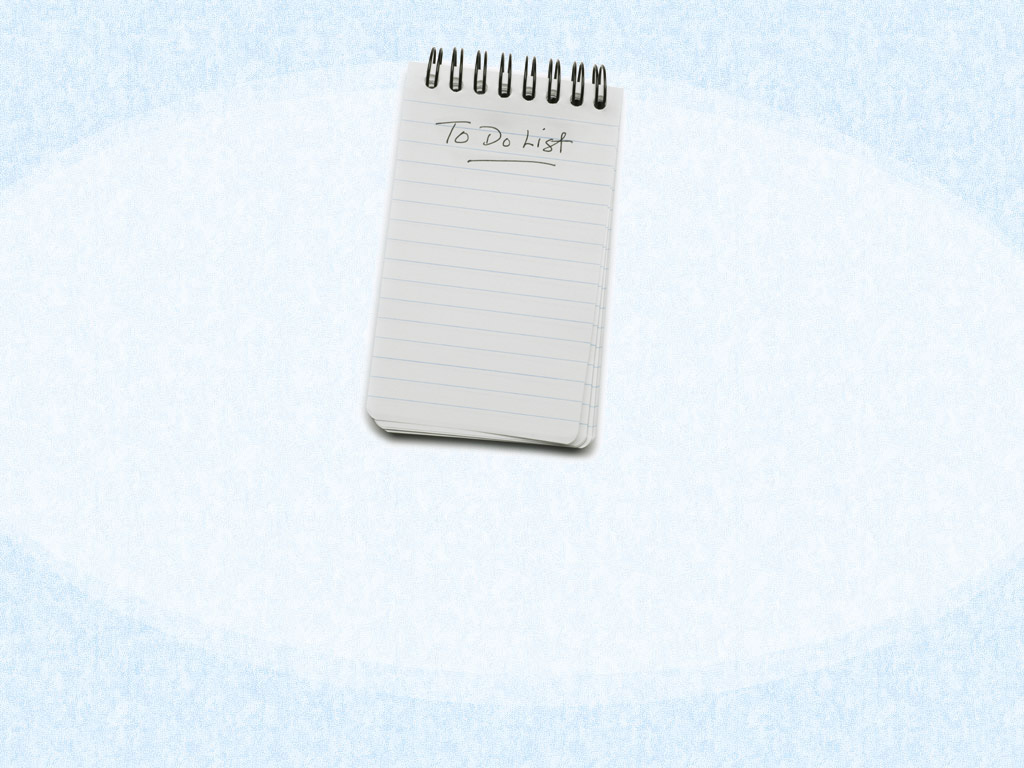 To Do List